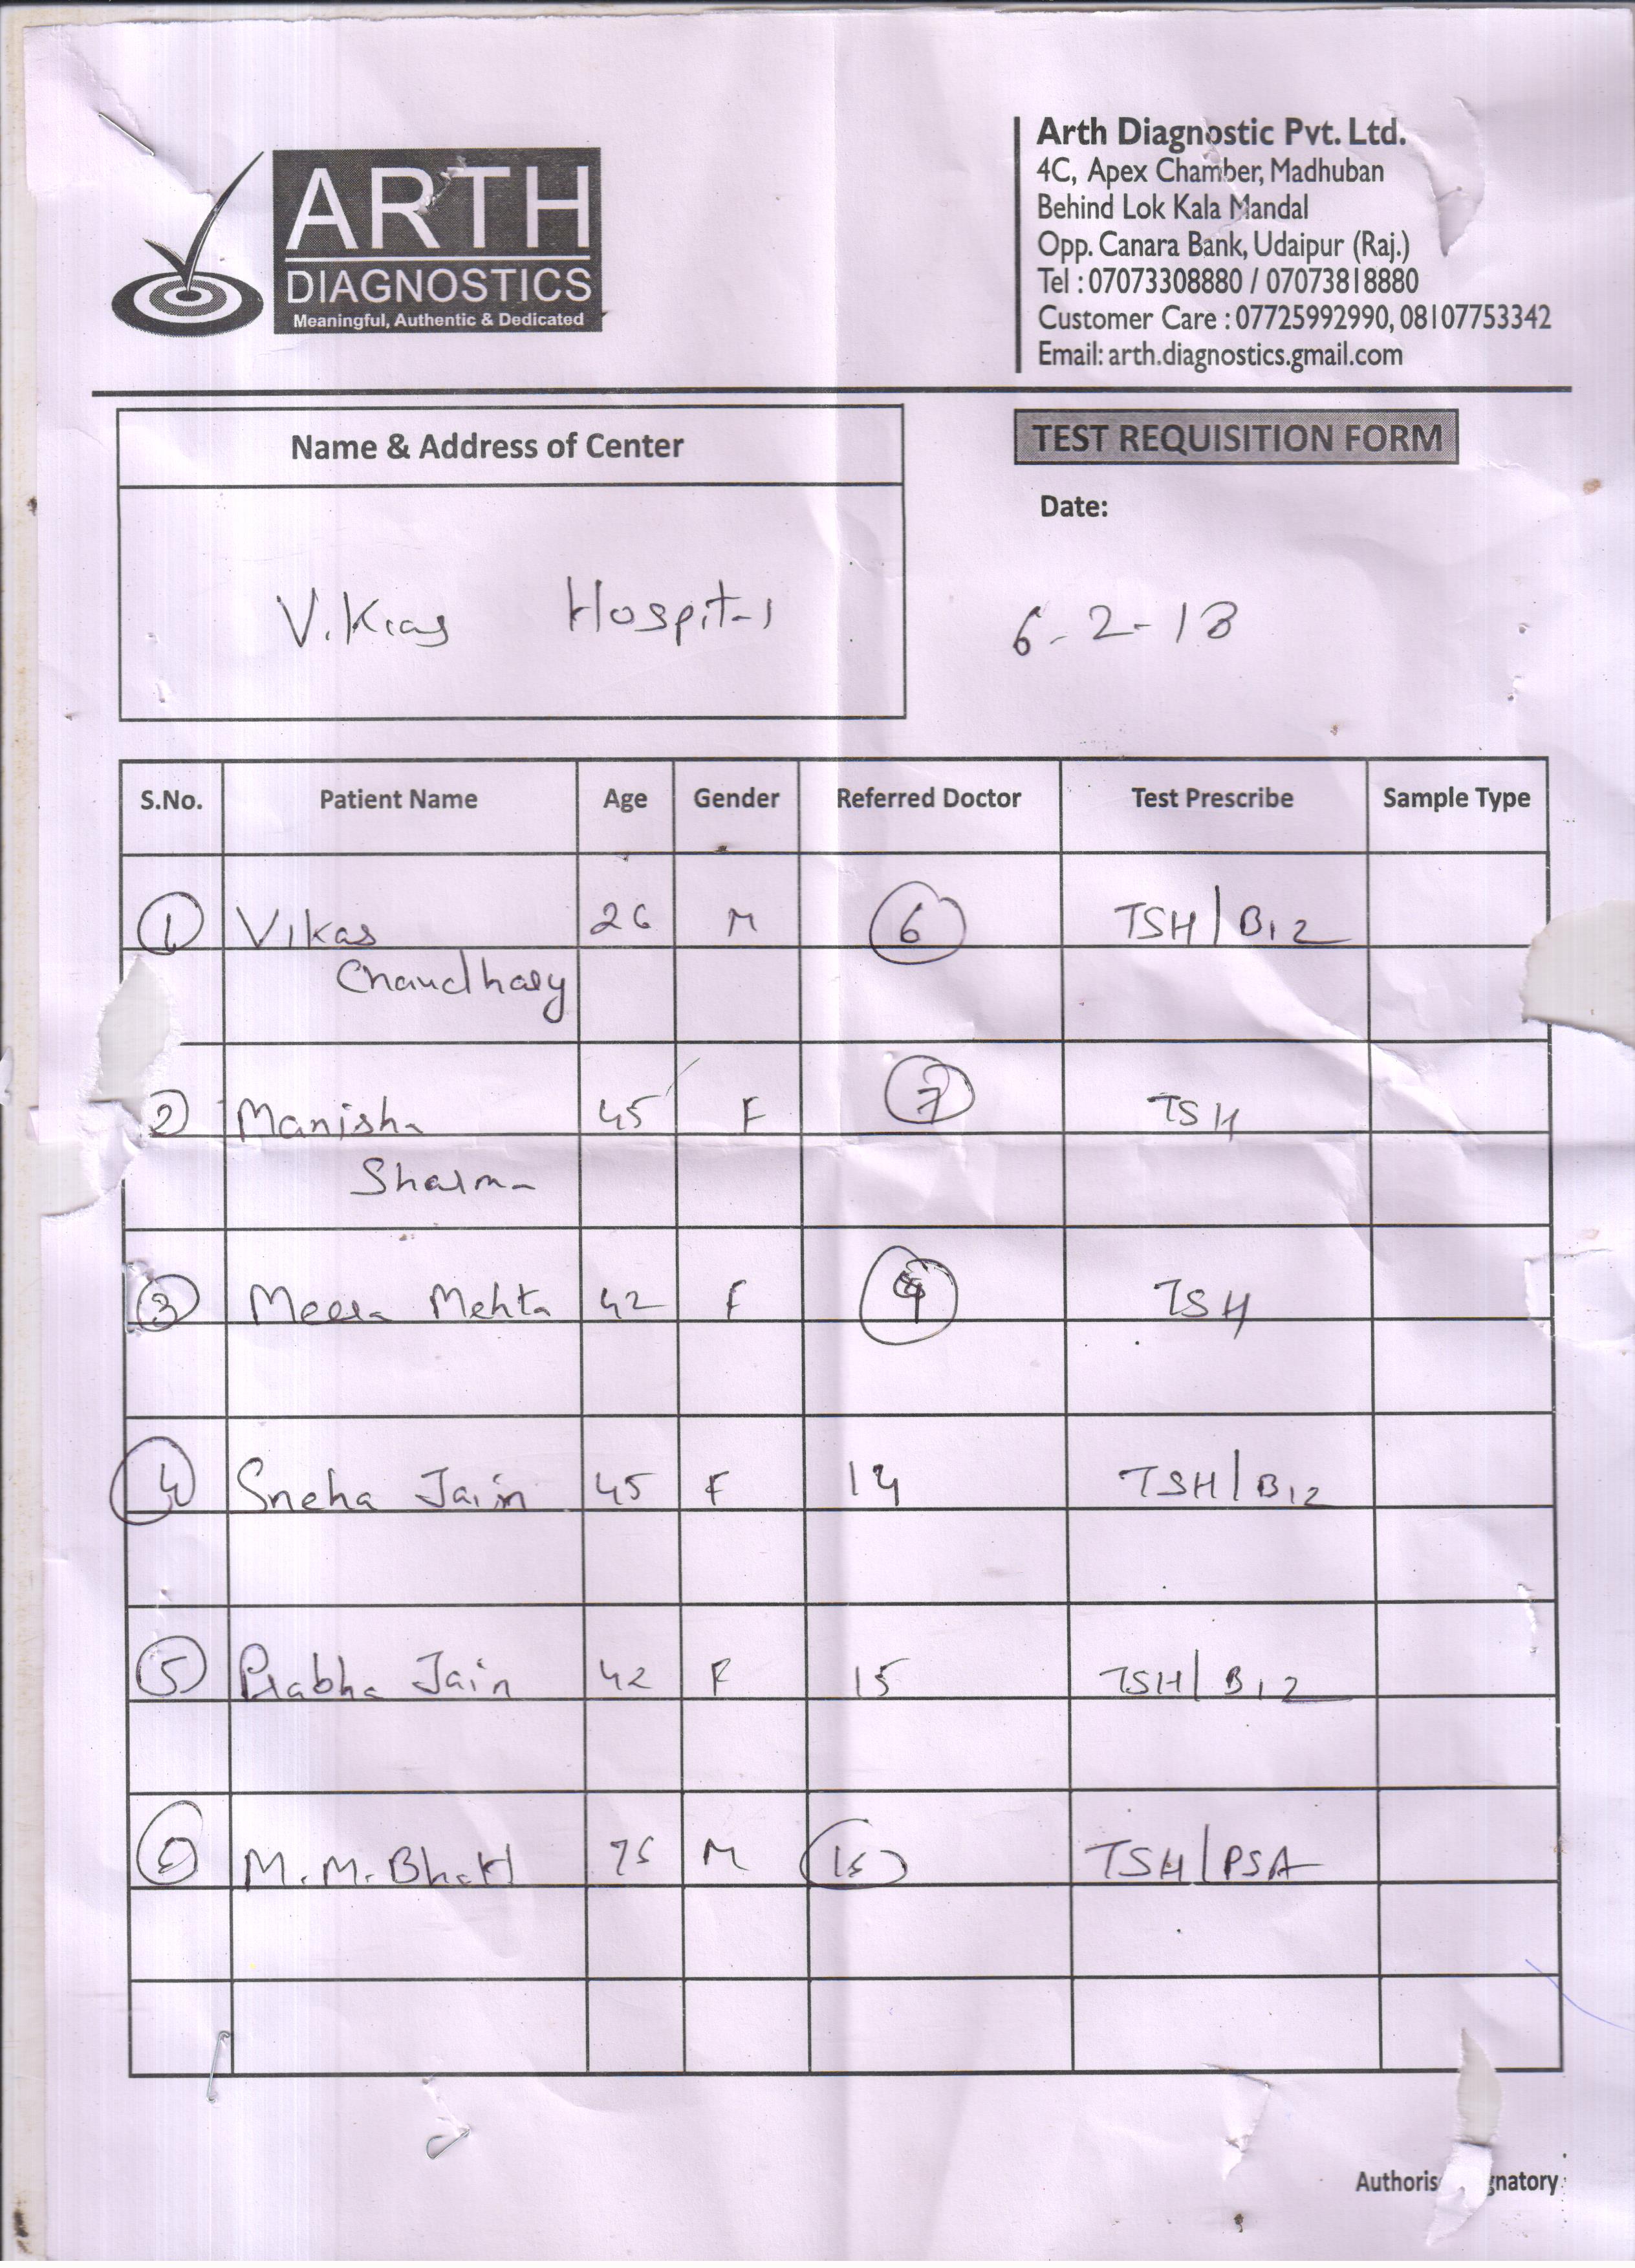 ARTH
DIAGNOSTICS
Meaningful, Authentic & Dedicated
Arth Diagnostic Pvt. Ltd.
4C, Apex Chamber, Madhuban
Behind Lok Kala Mandal
Opp. Canara Bank, Udaipur (Raj.)
Tel : 07073308880 / 07073818880
Customer Care : 07725992990, 08107753342
Email: arth.diagnostics.gmail.com
Name & Address of Center
TEST REQUISITION FORM
Date:
Hospital
6-2-18
S.No. Patient Name Age Gender Referred Doctor Test Prescribe Sample Type
1 Vikas 26 M 6 TSH/B12
Chaudhary
2 Manisha 45 F 7 TSH
Sharma
3 Meera Mehta 42 F TSH
4 Sneha Jain 45 F 14 TSH/B12
5 Prabha Jain 42 F 15 TSH/B12
M.M. M TSH/PSA